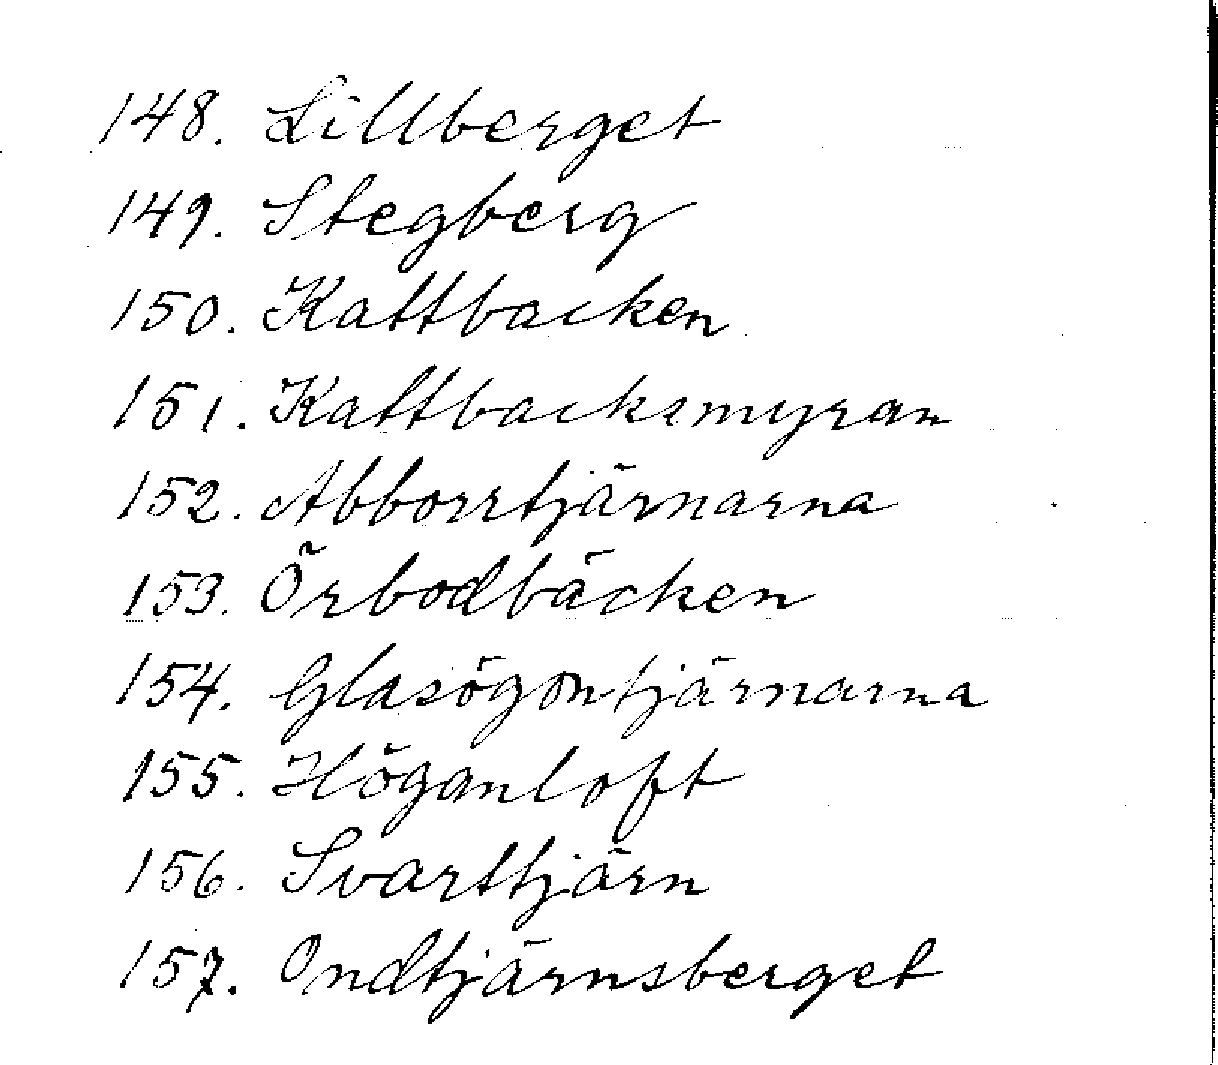 148. Lillberget
149. Stegberg
150. Kattbacken
151. Kattbacksmyran
152. Abborrtjärnarna
153. Örbodbäcken
154. Glasögontjärnarna
155. Höganloft
156. Svarttjärn
157. Ondtjärnsberget